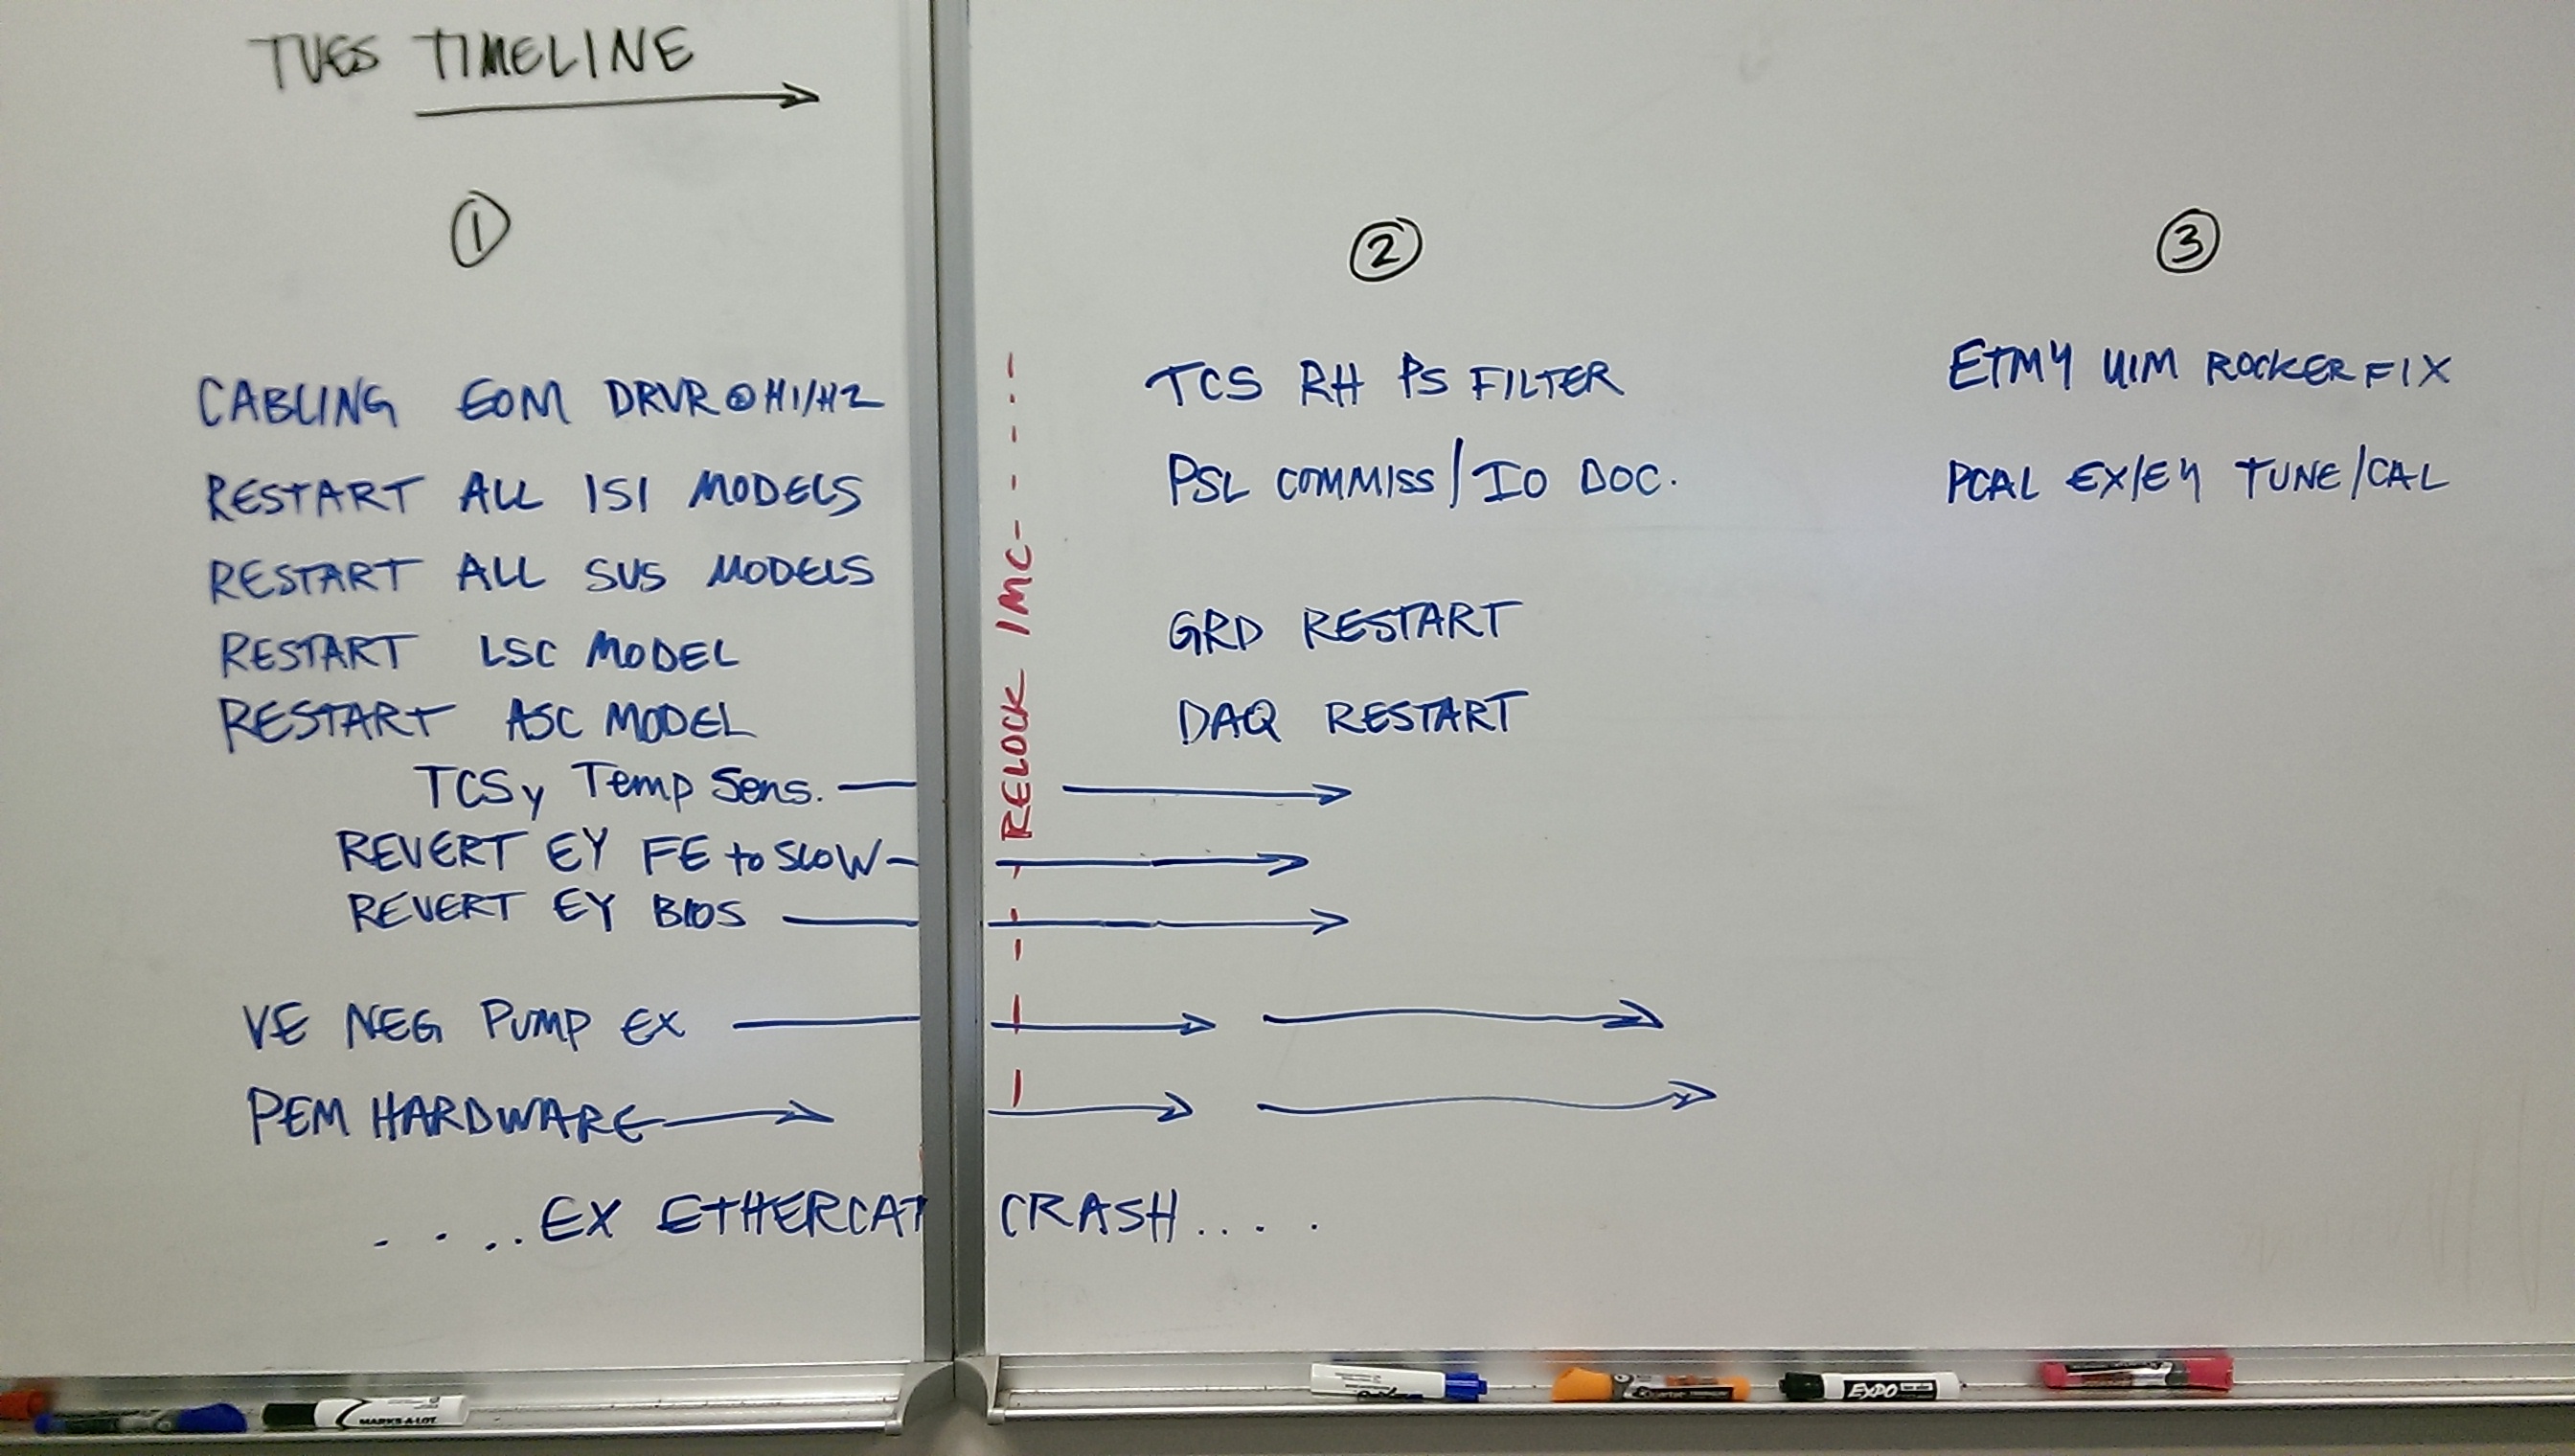 TUES TIMELINE
①
CABLING EOM DRVR @ H1/H2
RESTART ALL ISI MODELS
RESTART ALL SUS MODELS
RESTART LSC MODEL
RESTART ASC MODEL
TCSy Temp Sens.
REVERT EY FE to SLOW
REVERT EY BIOS
VE NEG PUMP EX
PEM HARDWARE
....EX ETHERCAT CRASH....
RELOCK IMC
②
TCS RH PS FILTER
PSL COMMISS/IO DOC.
GRD RESTART
DAQ RESTART
③
ETMY UIM ROCKER FIX
PCAL EX/EY TUNE/CAL
MARKS-A-LOT
EXPO